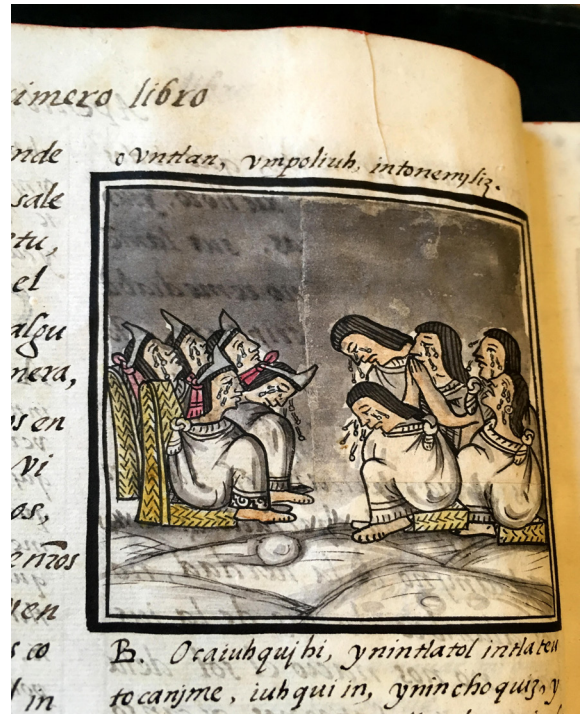 imero libro
nde
sale
etu,
el
algu
nera,
os en
vi
os,
uen
s co
in
o vntlan, vmpoliuh, intonemjliz.
B. Ocaiuhquj hi, ynintlatol intlateu
tocanjme, iuh qui in, ynin choquiz, y